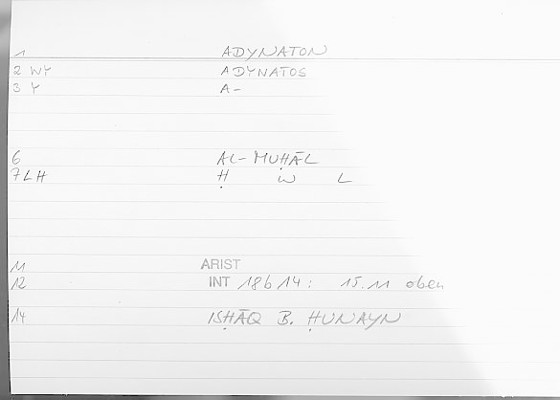 1 ADYNATON
2 WY ADYNATOS
3 Y A-
6 AL-MUḤĀL
7LH Ḥ W L
11 ARIST
12 INT 18b14: 15.11 oben
14 ISḤĀQ B. ḤUNAYN